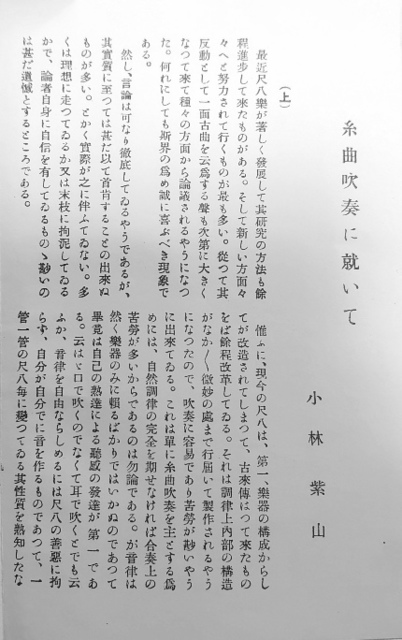 糸曲吹奏に就いて
小林紫山
(上)
最近尺八樂が著しく發展して其研究の方法も餘
程進步して來たものがある。そして新しい方面々
々へと努力されて行くものが最も多い。從つて其
反動として一面古曲を云爲する聲も次第に大きく
なつて來て種々の方面から論議されるやうになつ
た。何れにしても斯界の爲め誠に喜ぶべき現象で
ある。
然し、言論は可なり徹底してゐるやうであるが、
其實質に至つては甚だ以て首肯することの出來ぬ
ものが多い。とかく實際が之に伴ふてゐない。多
くは理想に走つてゐるか又は末枝に拘泥してゐる
かで、論者自身に自信を有してゐるものゝ尠いの
は甚だ遺憾とするところである。
惟ふに、現今の尺八は、第一、樂器の構成からし
てが改造されてしまつて、古來傳はつて來たもの
をば餘程改革してゐる。それは調律上內部の構造
がなか〱微妙の處まで行屆いて製作されるやう
になつたので、吹奏に容易であり苦勞が尠いやう
に出來てゐる。これは單に糸曲吹奏を主とする爲
めには、自然調律の完全を期せなければ合奏上の
苦勞が多いからであるのは勿論である。が音律は
然く樂器のみに頼るばかりではいかぬのであつて
畢竟は自己の熟達による聽感の發達が第一であ
る。云はゞ口で吹くのでなくて耳で吹くとでも云
ふか、音律を自由ならしめるには尺八の善惡に拘
らず、自分が自分でに音を作るものであつて、一
管一管の尺八每に變つてゐる其性質を熟知したな